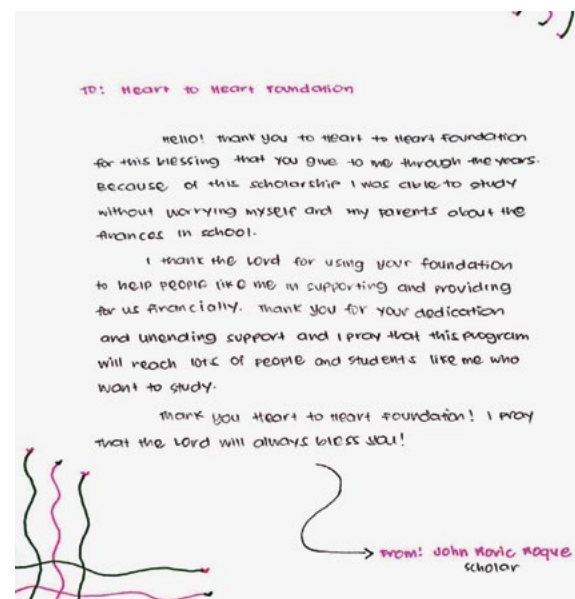 TO: Heart to Heart Foundation
Hello! Thank you to Heart to Heart Foundation
for this blessing that you give to me through the years.
Because of this scholarship I was able to study
without worrying myself and my parents about the
finances in school.
I thank the Lord for using your foundation
to help people like me in supporting and providing
for us financially. Thank you for your dedication
and unending support and I pray that this program
will reach lots of people and students like me who
want to study.
Thank you Heart to Heart Foundation! I pray
that the Lord will always bless you!
From: John Novic Roque
scholar